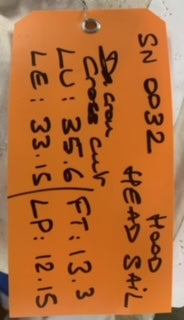 SN 0032 HOOD
HEAD SAIL
Dacron
Cross cut
LU: 35.6/ FT: 13.3
LE: 33.15/ LP: 12.15